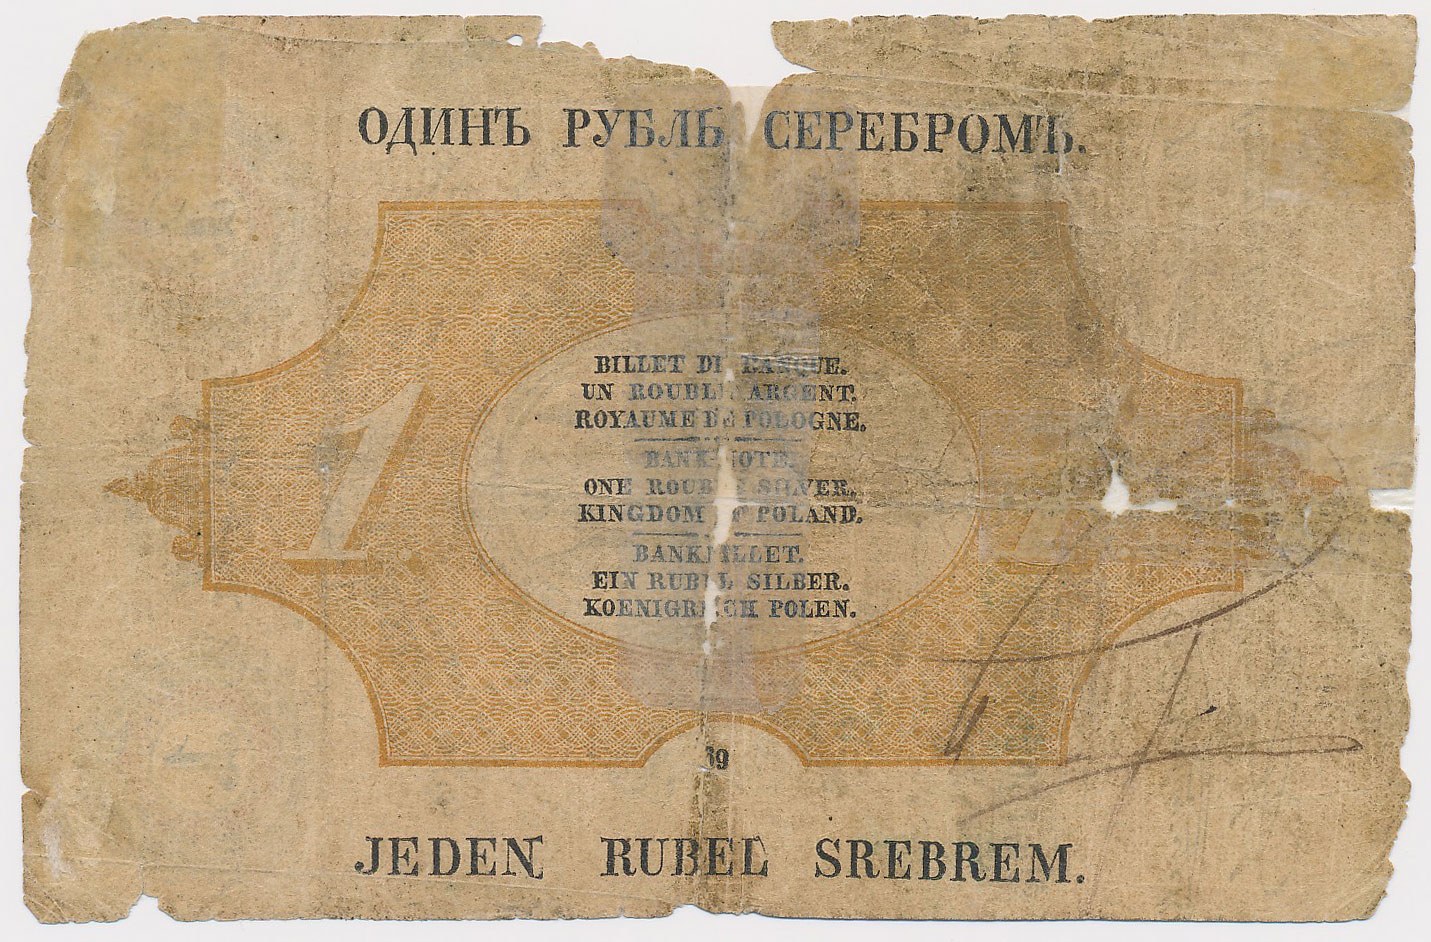 ОДИНЪ РУБЛЬ СЕРЕБРОМЪ.
BILLET DE BANQUE.
UN ROUBLE ARGENT.
ROYAUME DE POLOGNE.
BANK-NOTE.
ONE ROUBLE SILVER.
KINGDOM OF POLAND.
1 1
BANKBILLET.
EIN RUBEL SILBER.
KOENIGREICH POLEN.
69
JEDEN RUBEL SREBREM.